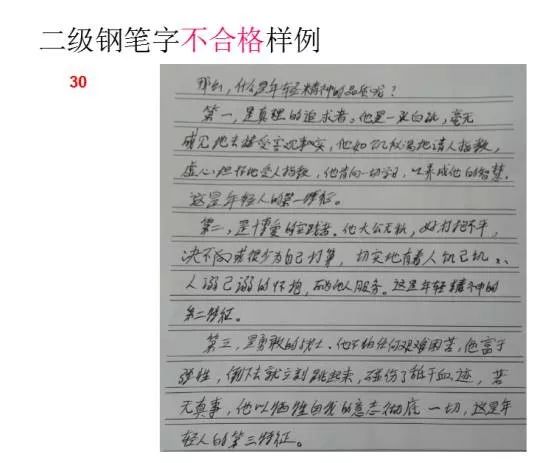 二级钢笔字不合格样例
30
那么，什么是年轻精神的品质呢？
第一，是真理的追求者。他是一张白纸，毫无
成见地去接受客观事实，他如饥似渴地请人指教，
虚心地受人指教，他肯向一切学习，以养成他的智慧。
这是年轻人的第一特征。
第二，是博爱的实践者。他大公无私，好打抱不平，
决不为自己打算，切实地有着人饥己饥、
人溺己溺的怀抱，为他人服务。这是年轻精神的
第二特征。
第三，是勇敢的战士。他不怕任何艰难困苦，他富于
弹性，倒下去就立刻跳起来，碰伤了舐干血迹，若
无其事，他以牺牲自我的意志彻底一切，这是年
轻人的第三特征。